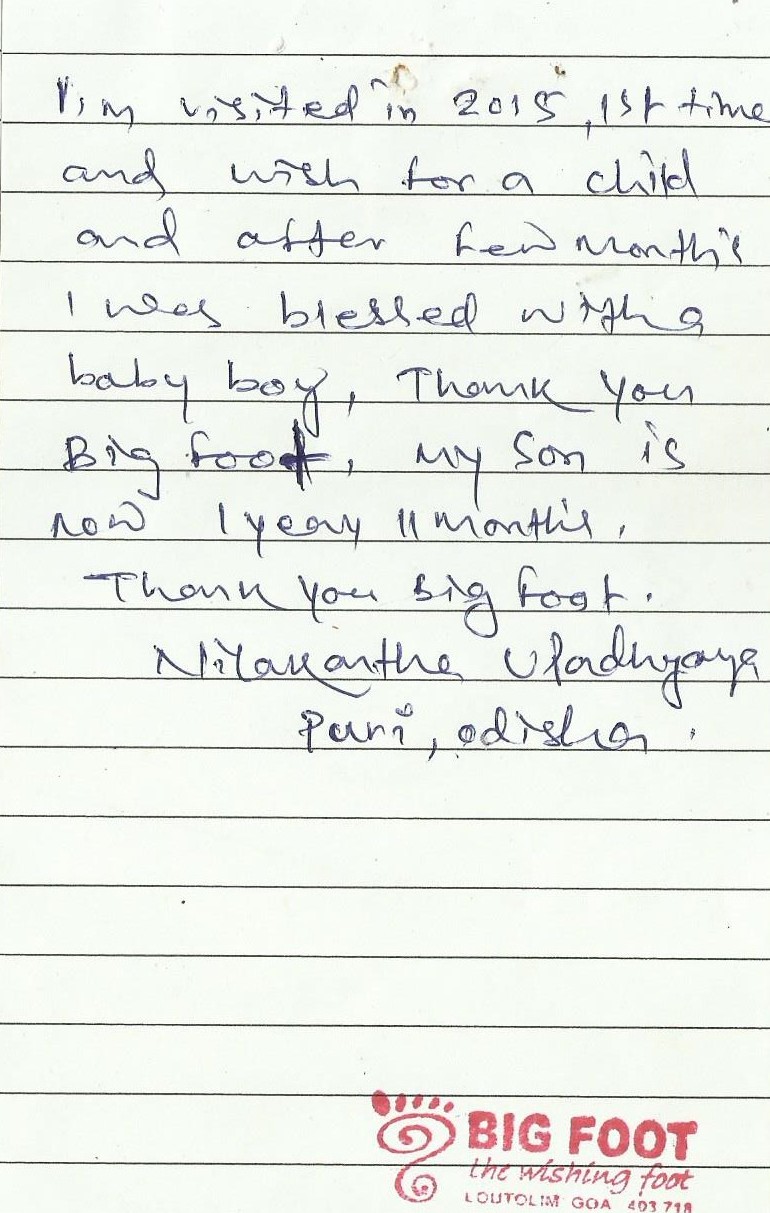 I'm visited in 2015, 1st time
and wish for a child
and after few month's
I was blessed with a
baby boy, Thank you
Big foot, my son is
now 1 year 11 month's.
Thank you Big foot.
Nilakantha Upadhyaya
Puri, odisha.
BIG FOOT
the wishing foot
LOUTOLIM GOA 403 718